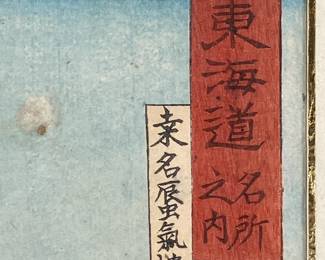 東海道名所之内
桒名蜃氣